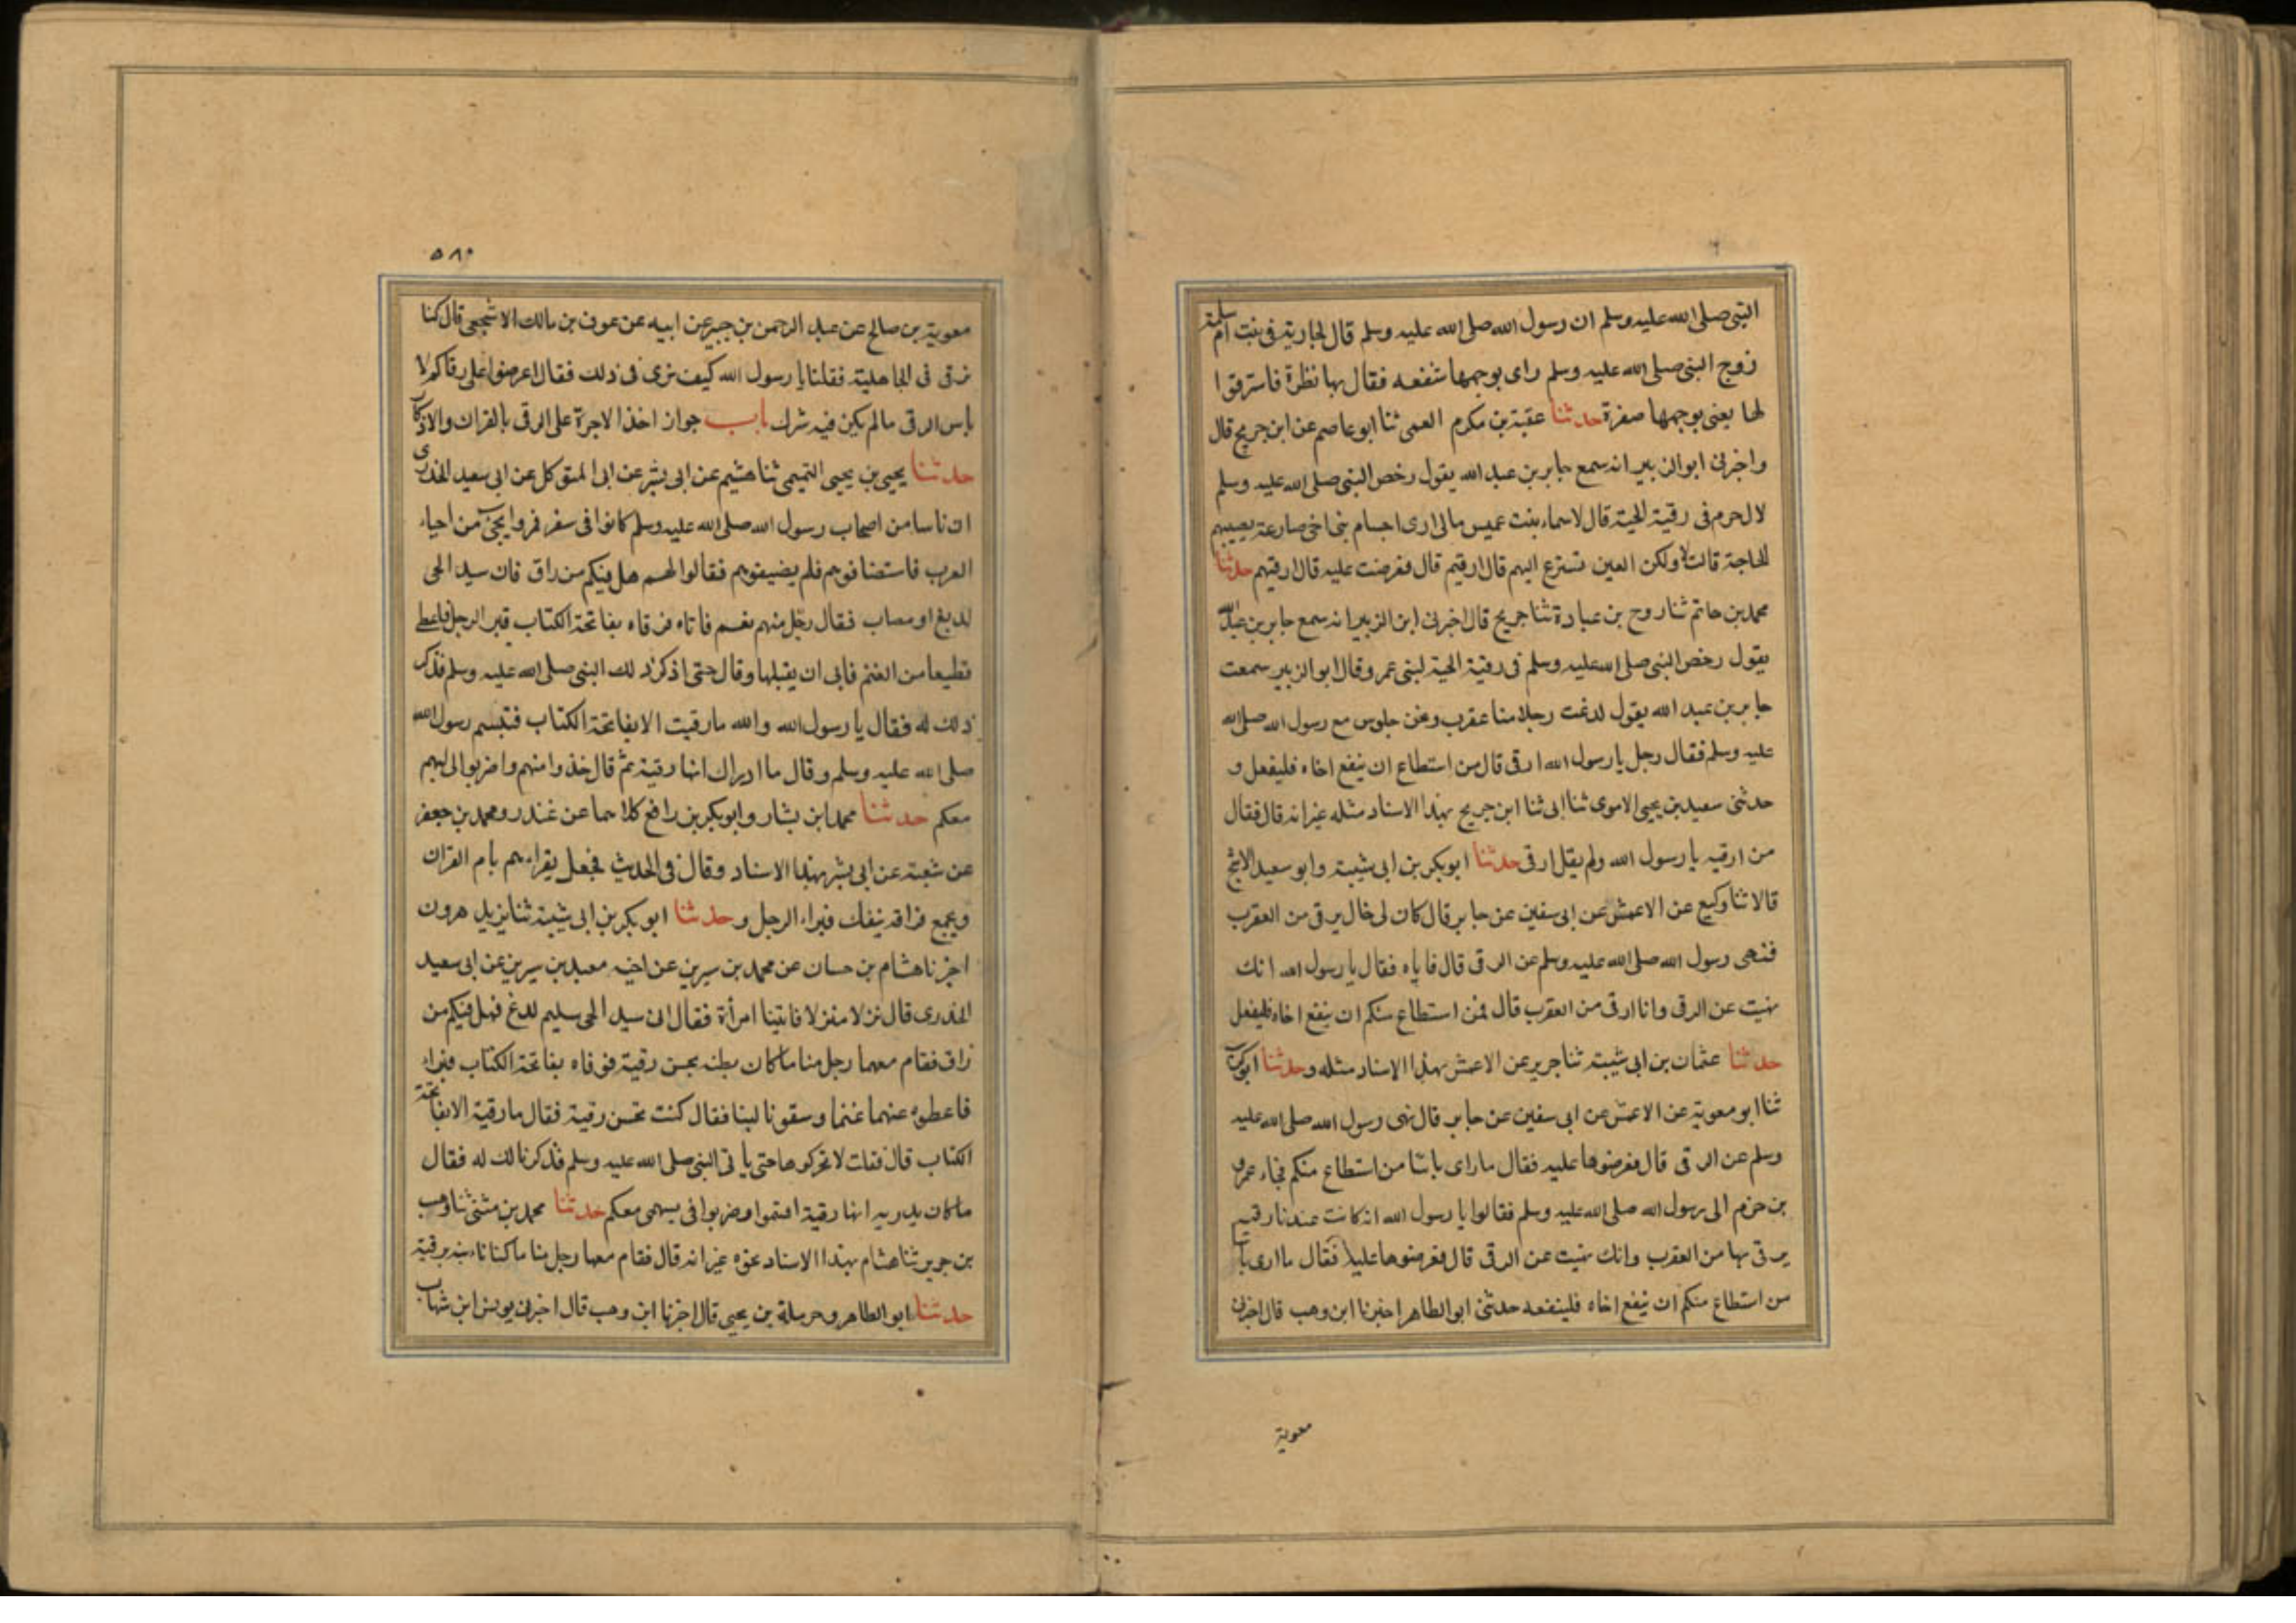 النبى صلى الله عليه وسلم ان رسول الله صلى الله عليه وسلم قال لجارية فى بنت ام سلمة
زوج النبى صلى الله عليه وسلم راى بوجهها شفعه فقال بها نظرة فاسترقوا
لها يعنى بوجهها صفرة حدثنا عقبة بن مكرم العمى ثنا ابو عاصم عن ابن جريج قال
واخبرنى ابو الزبير انه سمع جابر بن عبد الله يقول رخص النبى صلى الله عليه وسلم
لال حرم فى رقية الحية قال لاسماء بنت عميس مالى ارى اجسام بنى اخى صارعة يصيبهم
الحاجة قالت لا ولكن العين تسترع اليهم قال ارقيهم قال فعرضت عليه قال ارقيهم حدثنا
محمد بن حاتم ثنا روح بن عبادة ثنا جريج قال اخبرنى ابن الزبير انه سمع جابر بن عبد الله
يقول رخص النبى صلى الله عليه وسلم فى رقية الحية لبنى عمر وقال ابو الزبير سمعت
جابر بن عبد الله يقول لدغت رجلا منا عقرب ونحن جلوس مع رسول الله صلى الله
عليه وسلم فقال رجل يا رسول الله ارقى قال من استطاع ان ينفع اخاه فليفعل و
حدثنى سعيد بن يحيى الاموى ثنا ابى ثنا ابن جريج بهذا الاسناد مثله غير انه قال فقال
من ارقيه يا رسول الله ولم يقل ارقى حدثنا ابو بكر بن ابى شيبة وابو سعيد الاشج
قالا ثنا وكيع عن الاعمش عن ابى سفين عن جابر قال كان لى خال يرقى من العقرب
فنهى رسول الله صلى الله عليه وسلم عن الرقى قال فاياه فقال يا رسول الله انك
نهيت عن الرقى وانا ارقى من العقرب قال فمن استطاع منكم ان ينفع اخاه فليفعل
حدثنا عثمان بن ابى شيبة ثنا جرير عن الاعمش بهذا الاسناد مثله وحدثنا ابو كريب
ثنا ابو معوية عن الاعمش عن ابى سفين عن جابر قال نهى رسول الله صلى الله عليه
وسلم عن الرقى قال فعرضوها عليه فقال ما راى باسا من استطاع منكم فجاء عمرو
بن حزم الى رسول الله صلى الله عليه وسلم فقالوا يا رسول الله انه كانت عندنا رقية
يرقى بها من العقرب وانك نهيت عن الرقى قال فعرضوها عليه فقال ما ارى باسا
من استطاع منكم ان ينفع اخاه فلينفعه حدثنى ابو الطاهر اخبرنا ابن وهب قال اخبرنى
معوية
٥٨٠
معوية بن صالح عن عبد الرحمن بن جبير عن ابيه عن عوف بن مالك الاشجعى قال كنا
نرقى فى الجاهلية فقلنا يا رسول الله كيف ترى فى ذلك فقال اعرضوا على رقاكم لا
باس الرقى مالم يكن فيه شرك باب جواز اخذ الاجرة على الرقى بالقران والاذكار
حدثنا يحيى بن يحيى التميمى ثنا هشيم عن ابى بشر عن ابى المتوكل عن ابى سعيد الخدرى
ان ناسا من اصحاب رسول الله صلى الله عليه وسلم كانوا فى سفر فمروا بحى من احياء
العرب فاستضافوهم فلم يضيفوهم فقالوا لهم هل فيكم من راق فان سيد الحى
لديغ او مصاب فقال رجل منهم نعم فاتاه فرقاه بفاتحة الكتاب فبر الرجل فاعطى
قطيعا من الغنم فابى ان يقبلها وقال حتى اذكر ذلك النبى صلى الله عليه وسلم فذكر
ذلك له فقال يا رسول الله والله ما رقيت الا بفاتحة الكتاب فتبسم رسول الله
صلى الله عليه وسلم وقال ما ادراك انها رقية ثم قال خذوا منهم واضربوا الى بسهم
معكم حدثنا محمد ابن بشار وابو بكر بن رافع كلاهما عن غندر ومحمد بن جعفر
عن شعبة عن ابى بشر بهذا الاسناد وقال فى الحديث فجعل يقراءهم بام القران
ويجمع بزاقه ينفك فبراء الرجل وحدثنا ابو بكر بن ابى شيبة ثنا يزيد هرون
اخبرنا هشام بن حسان عن محمد بن سيرين عن اخيه معبد بن سيرين عن ابى سعيد
الخدرى قال نزلا منزلا فاتينا امرأة فقال ان سيد الحى سليم لدغ فهل فيكم من
راق فقام معها رجل منا ما كان يظنه بحسن رقية فرقاه بفاتحة الكتاب فبراء
فاعطوه عنهما غنما وسقونا لبنا فقال كنت تحسن رقية فقال ما رقية الا بفاتحة
الكتاب قال فقلت لا تحركوها حتى ياتى النبى صلى الله عليه وسلم فذكرنا لك له فقال
ما كان يدريه انها رقية اقتموا وضربوا فى بسهمى معكم حدثنا محمد بن مثنى ثنا وهب
بن جرير ثنا هشام بهذا الاسناد نحوه غير انه قال فقام معها رجل منا ما كنا نابنه برقية
حدثنا ابو الطاهر وحرملة بن يحيى قال اخبرنا ابن وهب قال اخبرنى يونس ابن شهاب